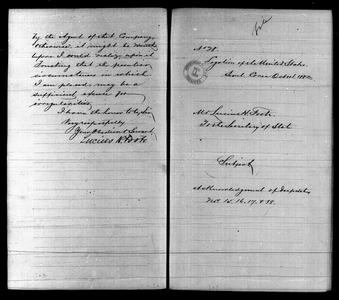 by the Agent of that Company,
otherwise, it might be
upon I could rely, and
trusting that the peculiar
circumstances in which
I am placed, may be a
sufficient excuse for
irregularities.
I have the honor to be, Sir
Very respectfully
Your Obedient Servant
Lucius H. Foote
No. 28.
Legation of the United States
Mr. Lucius H. Foote
To the Secretary of State
Subject
Acknowledgement of Despatches
Nos. 15, 16, 17, & 18.